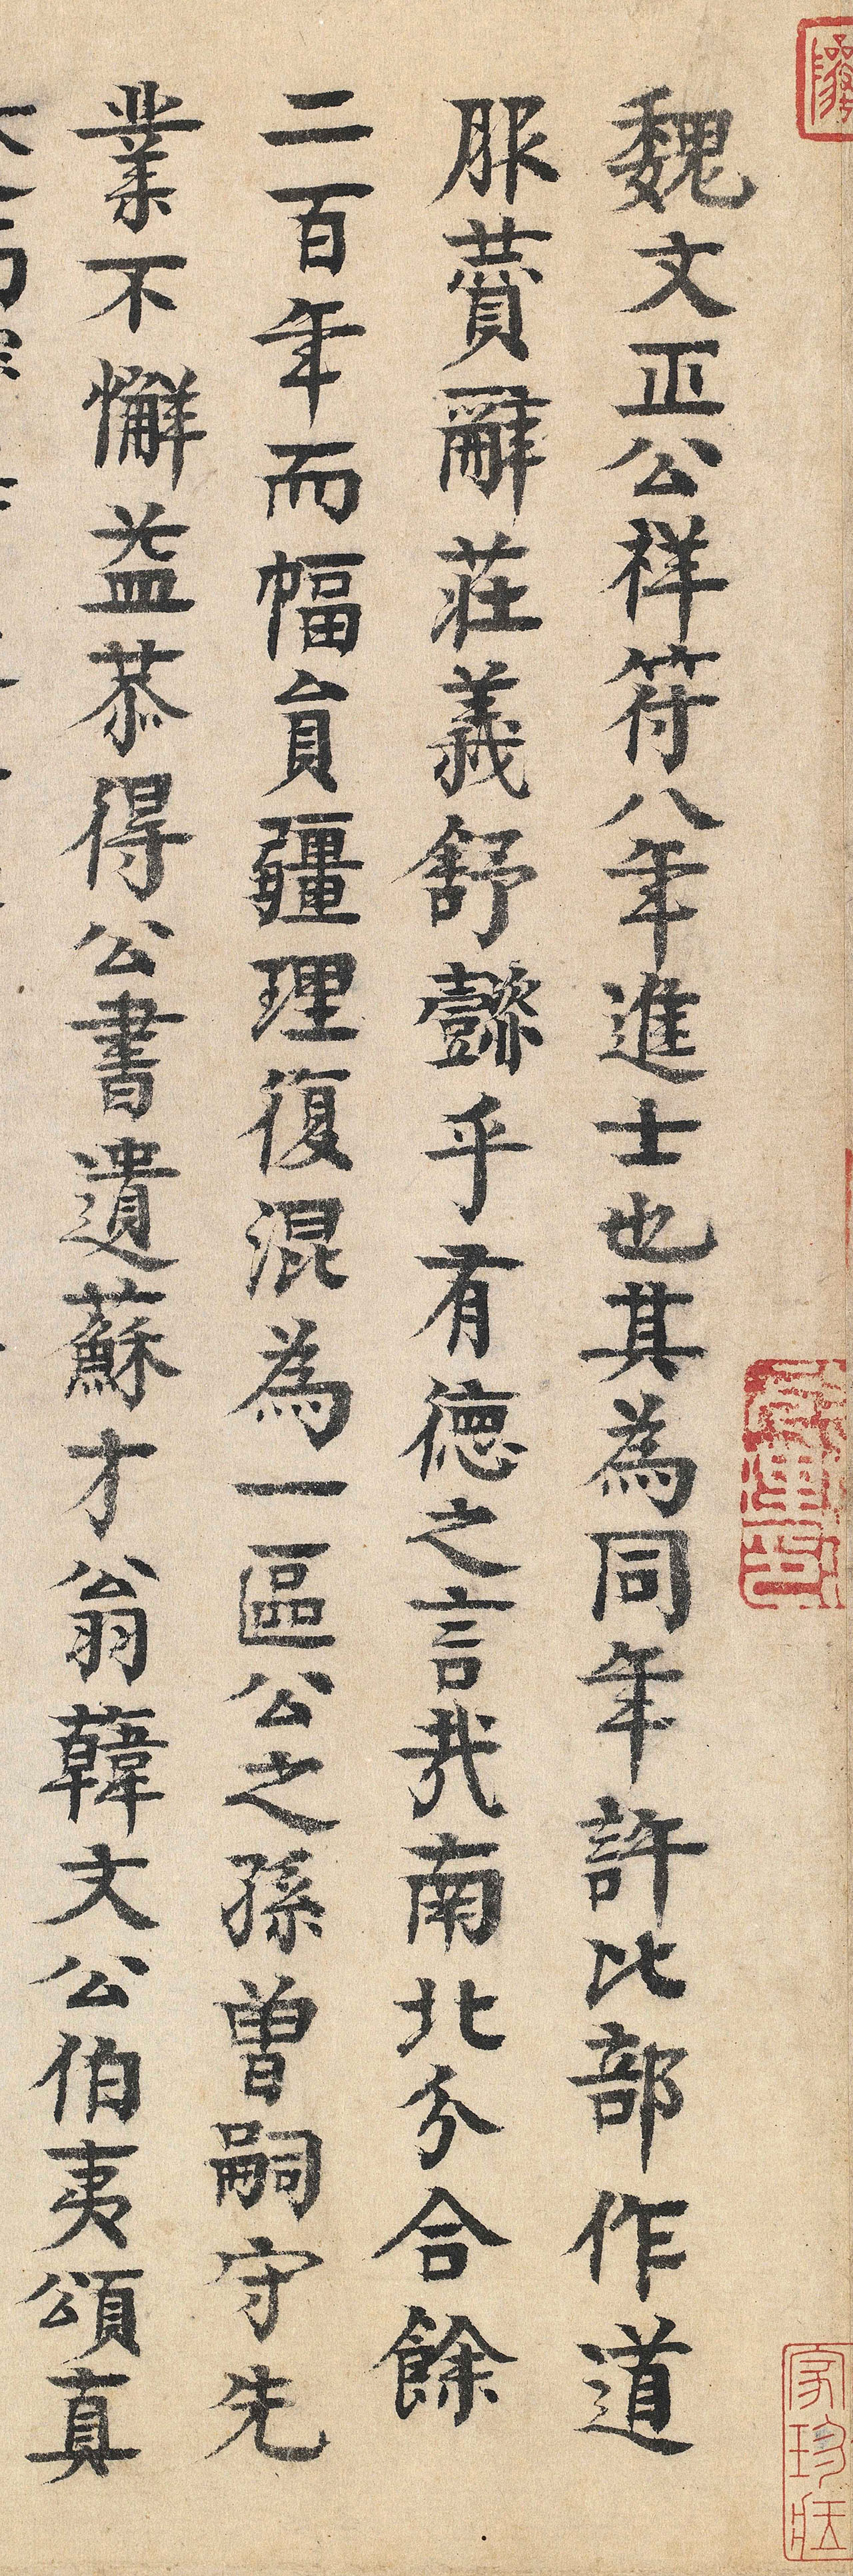 魏文正公祥符八年進士也其為同年許比部作道
服賛辭莊義舒懿乎有德之言哉南北分合餘
二百年而幅員疆理復混為一區公之孫曾嗣守先
業不懈益恭得公書遺蘇才翁韓文公伯夷頌真
家珍賍